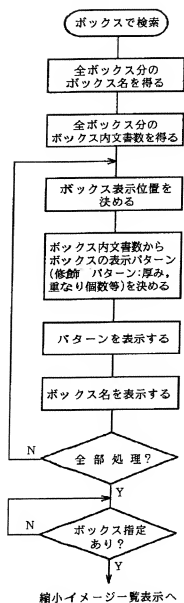 ボックスで検索
全ボックス分の
ボックス名を得る
全ボックス分の
ボックス内文書数を得る
ボックス表示位置を
決める
ボックス内文書数から
ボックスの表示パターン
(修飾 パターン:厚み,
重なり個数等)を決める
パターンを表示する
ボックス名を表示する
全部処理?
N
Y
ボックス指定
あり?
N
Y
縮小イメージ一覧表示へ